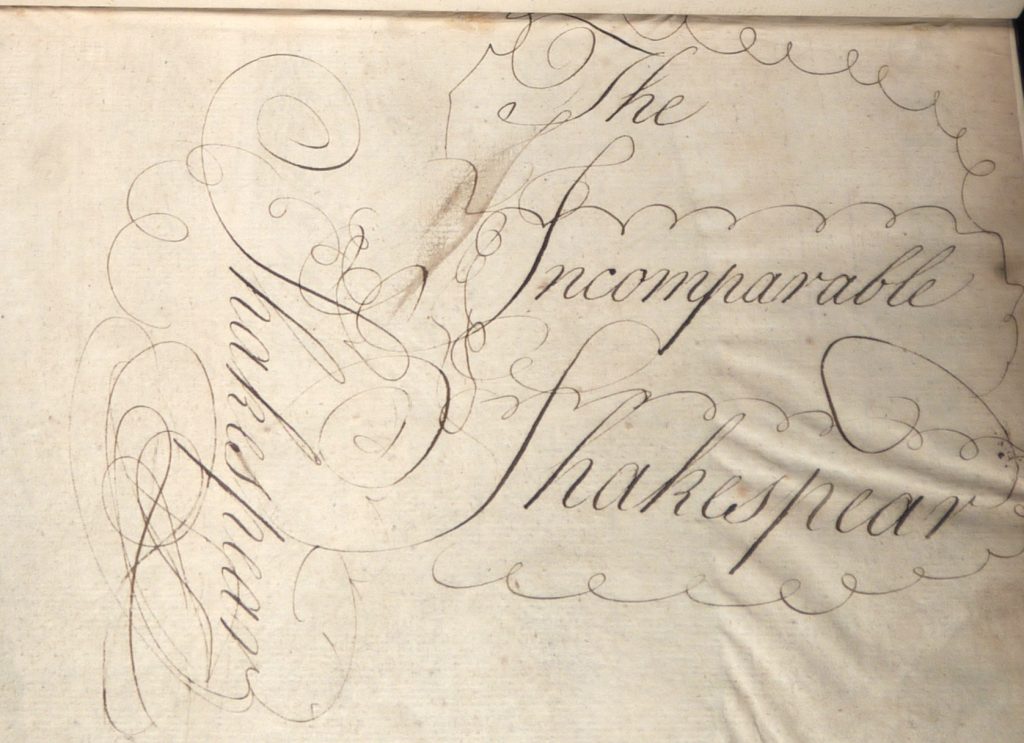 The
Incomparable
Shakespear
Shakespear